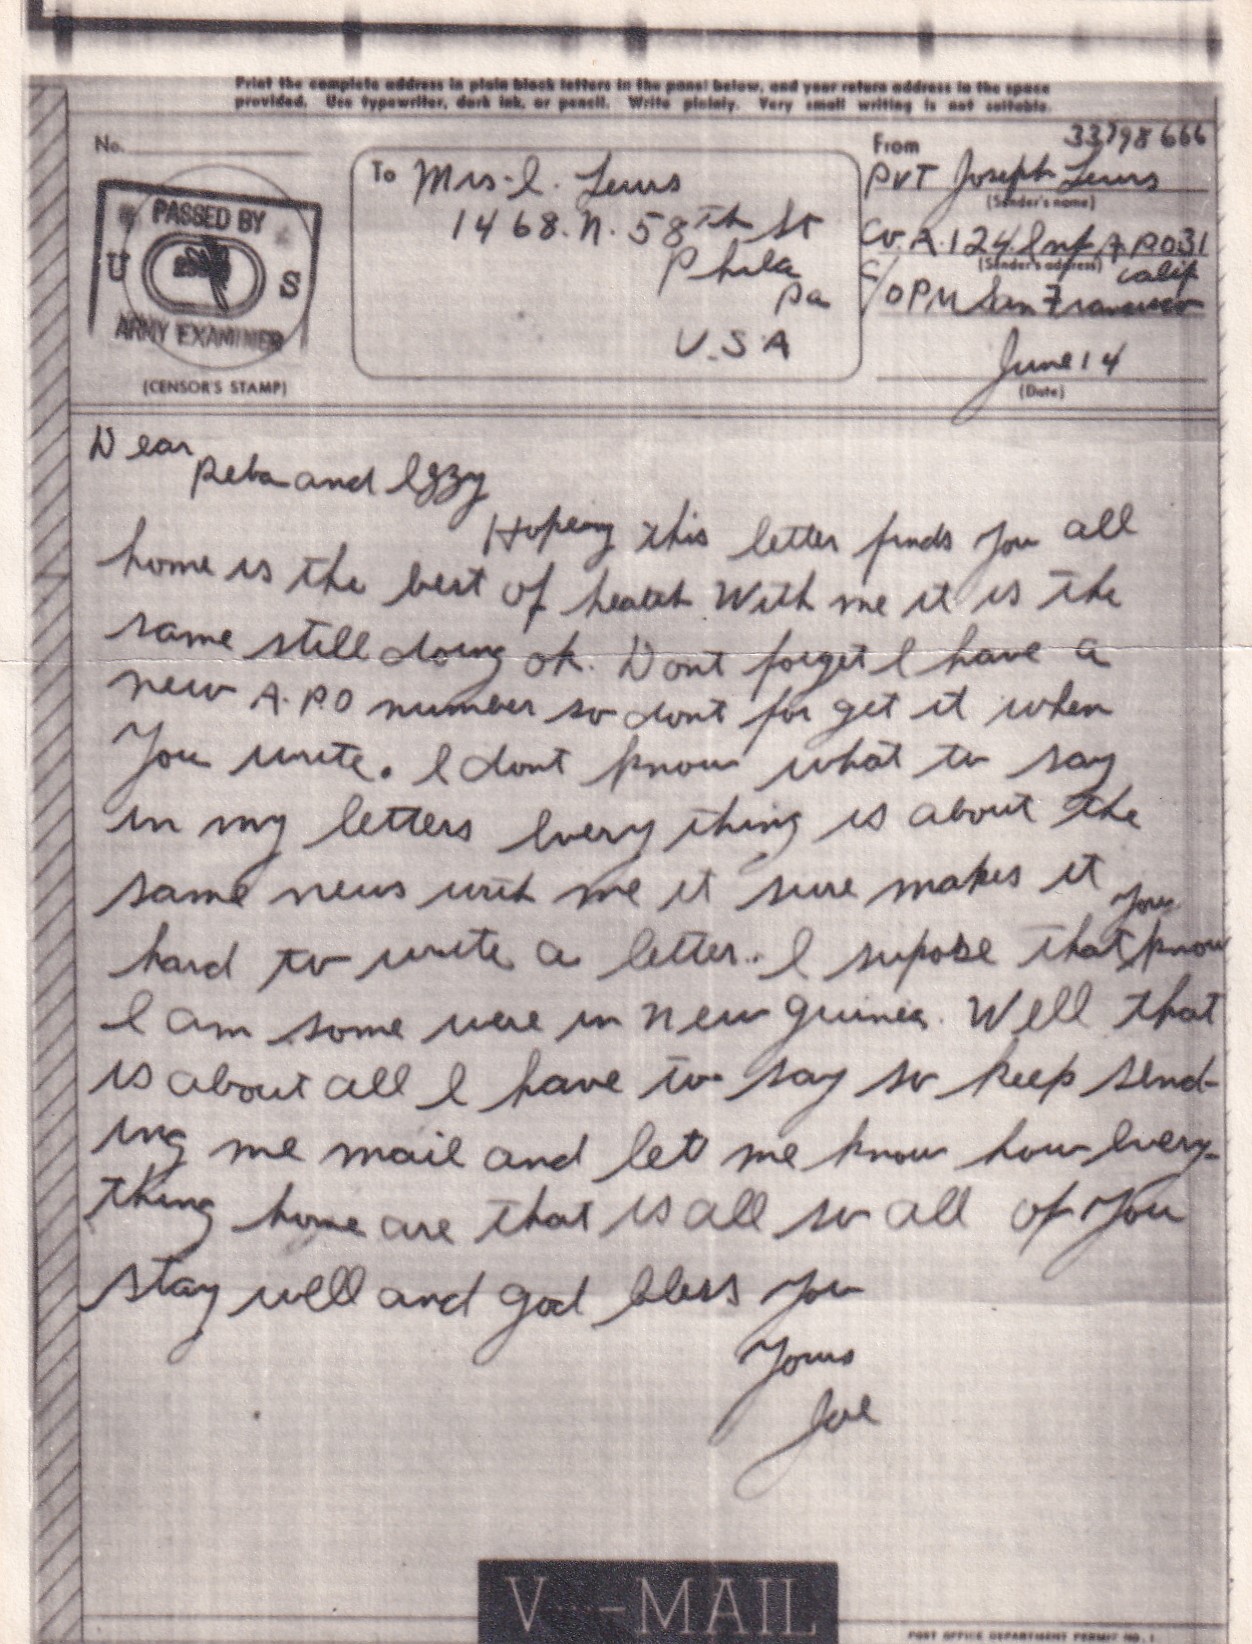 Print the complete address in plain block letters in the panel below, and your return address in the space
provided. Use typewriter, dark ink, or pencil. Write plainly. Very small writing is not suitable.
No.
PASSED BY
U S
ARMY EXAMINER
(CENSOR'S STAMP)
To Mrs. I. Lewis
1468. N. 58th St
Phila
Pa
U.S.A
From 33798666
PVT Joseph Lewis
(Sender's name)
Co. A. 124 Inf A P.O 31
(Sender's address)
c/o PM San Francisco calif
June 14
(Date)
Dear
Reba and Iggy
Hopeing this letter finds you all
home is the best of health With me it is the
same still doing ok. Dont forget I have a
new A.P.O number so dont for get it when
You write. I dont know what to say
in my letters Every thing is about the
same news with me it sure makes it
hard to write a letter.. I supose that you know
I am some were in New guinea. Well that
is about all I have to say so keep send-
ing me mail and let me know how Every-
thing home are that is all so all of You
stay well and god bless You
Yours
Joe
V···-MAIL
POST OFFICE DEPARTMENT PERMIT NO. 1